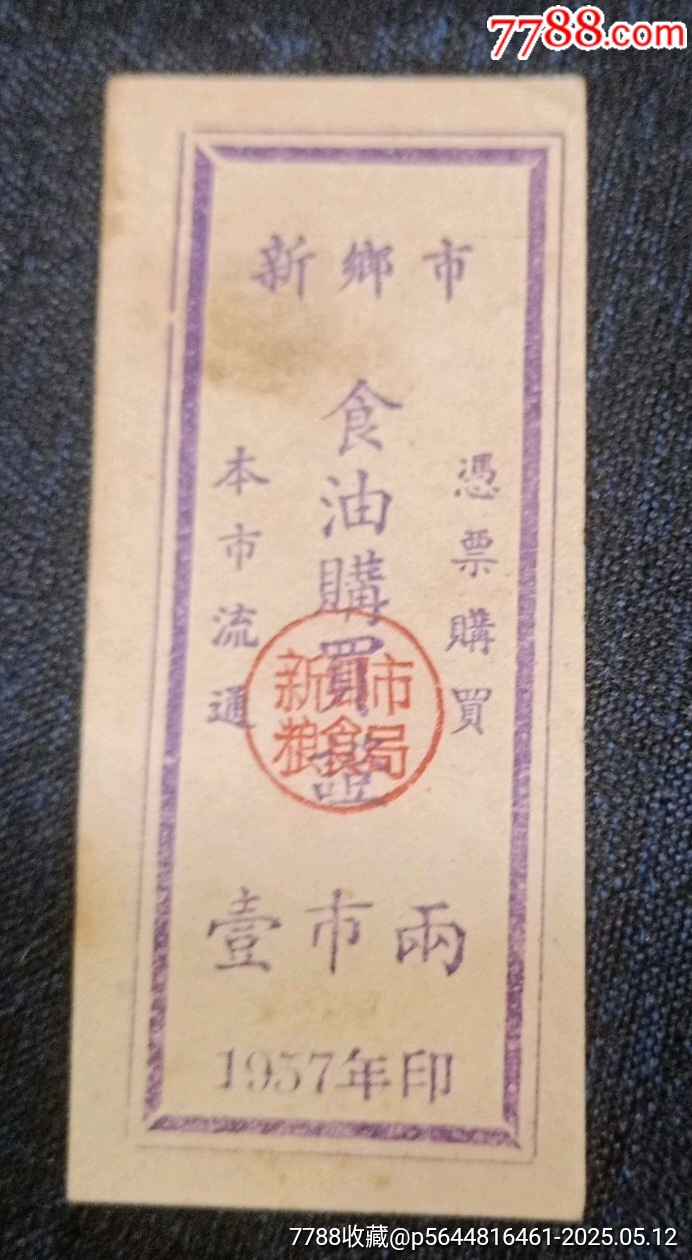 7788.com
新鄉市
憑票購買
食油購買證
本市流通
新鄉市
粮食局
壹市兩
1957年印
7788收藏@p5644816461-2025.05.12